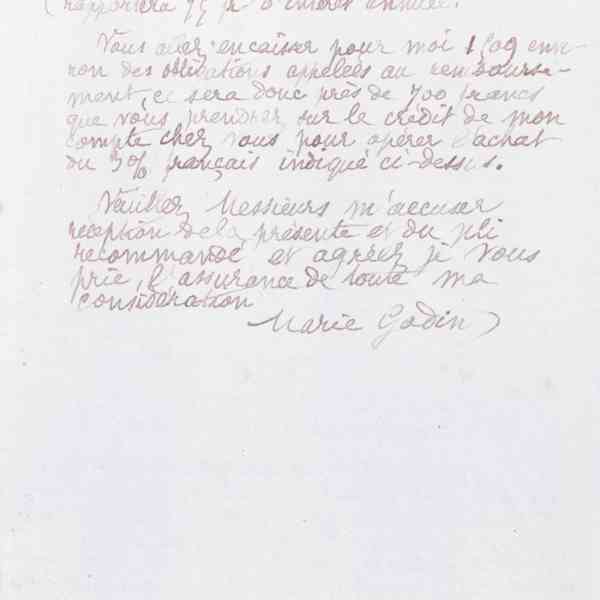 (rapportera 95 fr d'intérêt annuel.
Vous allez encaisser pour moi 1509 envi-
ron des obligations appelées au rembourse-
ment, ce sera donc près de 700 francs
que vous prendrez sur le crédit de mon
compte chez vous pour opérer l'achat
du 3% français indiqué ci-dessus.
Veuillez Messieurs m'accuser
réception de la présente et du pli
recommandé et agréez je vous
prie, l'assurance de toute ma
considération
Marie Godin